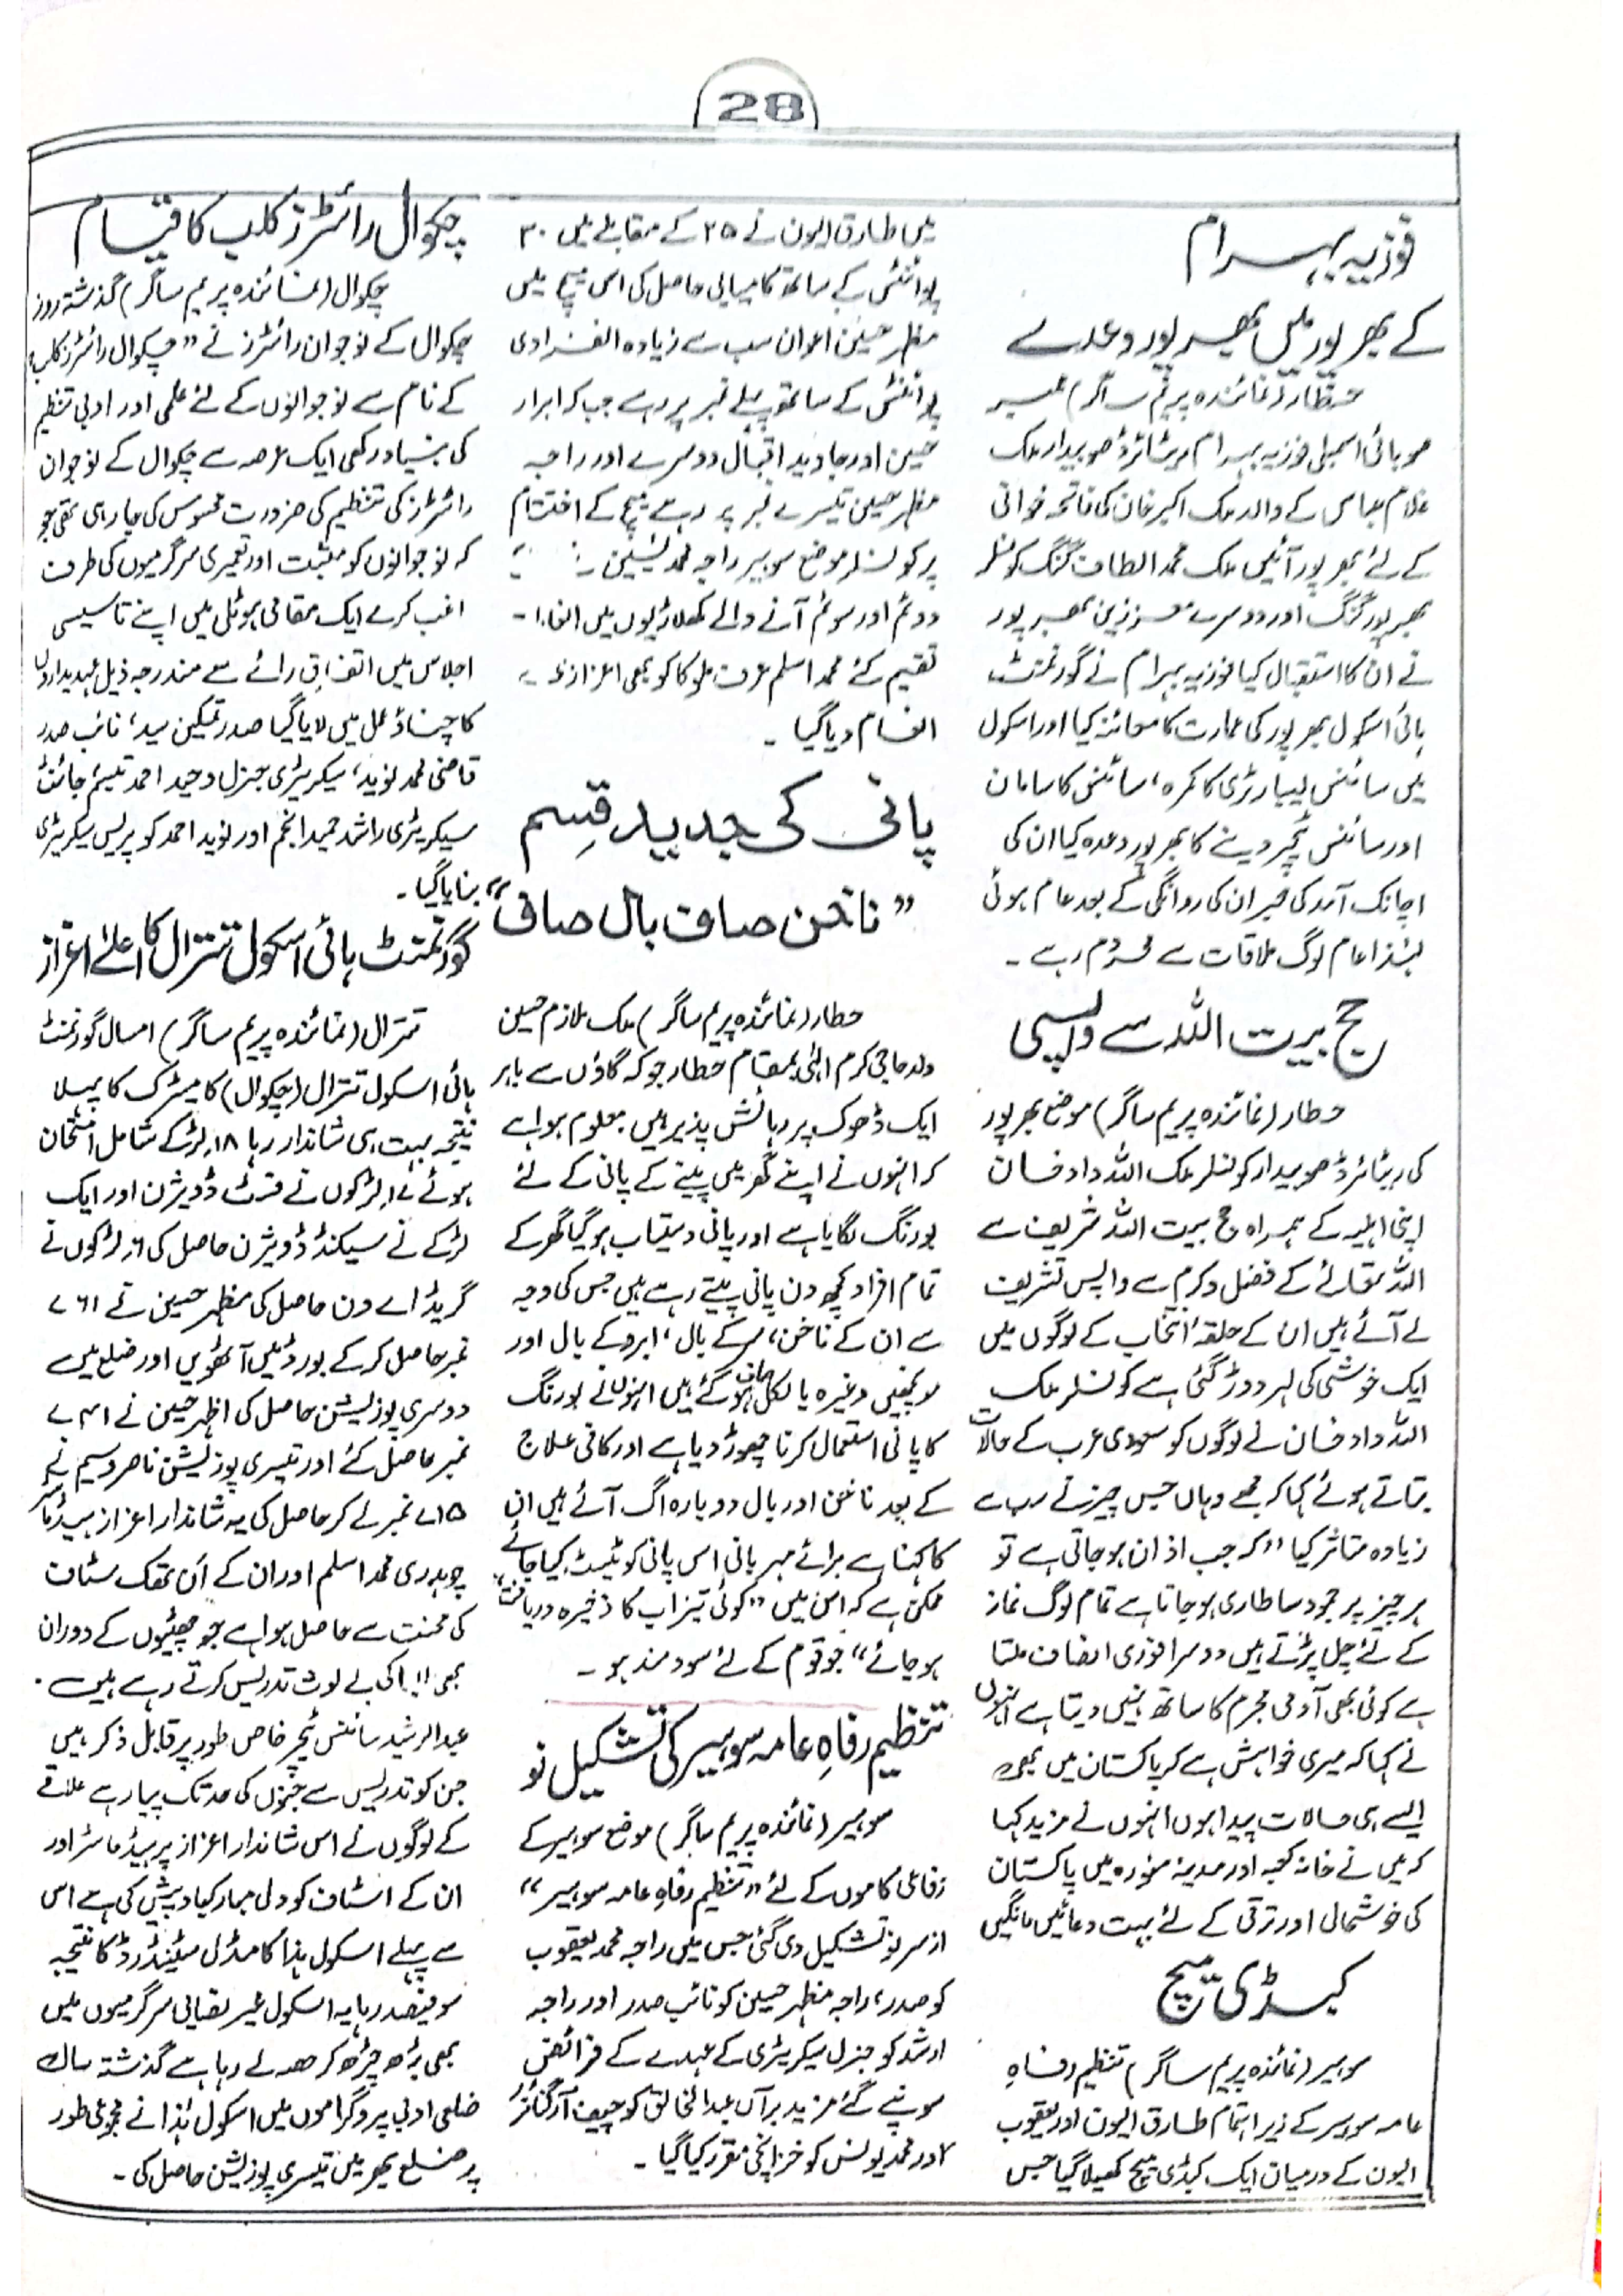 28
فوزیہ بہرام
کے بھرپور میں بھرپور وعدے
حطار (نمائندہ پریم ساگر) ممبر
صوبائی اسمبلی فوزیہ بہرام ریٹائرڈ صوبیدار ملک
غلام عباس کے والد ملک اکبر خان کی فاتحہ خوانی
کے لئے بھرپور آئیں ملک محمد الطاف گنگ کونسلر
بھرپور گنگ اور دوسرے معززین بھرپور
نے ان کا استقبال کیا فوزیہ بہرام نے گورنمنٹ
ہائی اسکول بھرپور کی عمارت کا معائنہ کیا اور اسکول
میں سائنس لیبارٹری کا کمرہ، سائنس کا سامان
اور سائنس ٹیچر دینے کا بھرپور وعدہ کیا ان کی
اچانک آمد کی خبر ان کی روانگی کے بعد عام ہوئی
لہٰذا عام لوگ ملاقات سے محروم رہے ۔
حج بیت اللہ سے واپسی
حطار (نمائندہ پریم ساگر) موضع بھرپور
کی ریٹائرڈ صوبیدار کونسلر ملک اللہ داد خان
اپنی اہلیہ کے ہمراہ حج بیت اللہ شریف سے
اللہ تعالےٰ کے فضل و کرم سے واپس تشریف
لے آئے ہیں ان کے حلقۂ انتخاب کے لوگوں میں
ایک خوشی کی لہر دوڑ گئی ہے کونسلر ملک
اللہ داد خان نے لوگوں کو سعودی عرب کے حالات
بتاتے ہوئے کہا کہ مجھے وہاں جس چیز نے سب سے
زیادہ متاثر کیا ”کہ جب اذان ہو جاتی ہے تو
ہر چیز پر جمود سا طاری ہو جاتا ہے تمام لوگ نماز
کے لئے چل پڑتے ہیں دوسرا فوری انصاف ملتا
ہے کوئی بھی آدمی مجرم کا ساتھ نہیں دیتا ہے انہوں
نے کہا کہ میری خواہش ہے کہ پاکستان میں بھی
ایسے ہی حالات پیدا ہوں انہوں نے مزید کہا
کہ میں نے خانہ کعبہ اور مدینہ منورہ میں پاکستان
کی خوشحالی اور ترقی کے لئے بہت دعائیں مانگیں
کبڈی میچ
سوہیر (نمائندہ پریم ساگر) تنظیم رفاہِ
عامہ سوہیر کے زیر اہتمام طارق الیون اور یعقوب
الیون کے درمیان ایک کبڈی میچ کھیلا گیا جس
میں طارق الیون نے ۲۵ کے مقابلے میں ۳۰
پوائنٹس کے ساتھ کامیابی حاصل کی اس میچ میں
مظہر حسین اعوان سب سے زیادہ انفرادی
پوائنٹس کے ساتھ پہلے نمبر پر رہے جب کہ ابرار
حسین اور جاوید اقبال دوسرے اور راجہ
مظہر حسین تیسرے نمبر پر رہے میچ کے اختتام
پر کونسلر موضع سوہیر راجہ محمد یٰسین
دوئم اور سوئم آنے والے کھلاڑیوں میں
تقسیم کئے محمد اسلم عرف ملوکا کو بھی اعزازی
انعام دیا گیا ۔
پانی کی جدید قِسم
”ناخن صاف بال صاف“
حطار (نمائندہ پریم ساگر) ملک ملازم حسین
ولد حاجی کرم الٰہی بمقام حطار جو کہ گاؤں سے باہر
ایک ڈھوک پر رہائش پذیر ہیں معلوم ہوا ہے
کہ انہوں نے اپنے گھر میں پینے کے پانی کے لئے
بورنگ لگایا ہے اور پانی دستیاب ہو گیا گھر کے
تمام افراد کچھ دن پانی پیتے رہے ہیں جس کی وجہ
سے ان کے ناخن، سر کے بال، ابرو کے بال اور
مونچھیں وغیرہ بالکل صاف ہو گئے ہیں انہوں نے بورنگ
کا پانی استعمال کرنا چھوڑ دیا ہے اور کافی علاج
کے بعد ناخن اور بال دوبارہ اگ آئے ہیں ان
کا کہنا ہے برائے مہربانی اس پانی کو ٹیسٹ کیا جائے
ممکن ہے کہ اس میں ”کوئی تیزاب کا ذخیرہ دریافت
ہو جائے“ جو قوم کے لئے سود مند ہو ۔
تنظیم رفاہِ عامہ سوہیر کی تشکیل نو
سوہیر (نمائندہ پریم ساگر) موضع سوہیر کے
رفاعی کاموں کے لئے ”تنظیم رفاہِ عامہ سوہیر“
از سر نو تشکیل دی گئی جس میں راجہ محمد یعقوب
کو صدر، راجہ مظہر حسین کو نائب صدر اور راجہ
ارشد کو جنرل سیکریٹری کے عہدے کے فرائض
سونپے گئے مزید برآں عبدالخالق کو چیف آرگنائزر
اور محمد یونس کو خزانچی مقرر کیا گیا ۔
چکوال رائٹرز کلب کا قیام
چکوال (نمائندہ پریم ساگر) گذشتہ روز
چکوال کے نوجوان رائٹرز نے ”چکوال رائٹرز کلب“
کے نام سے نوجوانوں کے لئے علمی اور ادبی تنظیم
کی بنیاد رکھی ایک عرصہ سے چکوال کے نوجوان
رائٹرز کی تنظیم کی ضرورت محسوس کی جا رہی تھی جو
کہ نوجوانوں کو مثبت اور تعمیری سرگرمیوں کی طرف
اغب کرے ایک مقامی ہوٹل میں اپنے تاسیسی
اجلاس میں اتفاق رائے سے مندرجہ ذیل عہدیداروں
کا چناؤ عمل میں لایا گیا صدر تمکین سید، نائب صدر
قاضی محمد نوید، سیکریٹری جنرل وحید احمد تبسم جائنٹ
سیکریٹری راشد حمید انجم اور نوید احمد کو پریس سیکریٹری
بنایا گیا ۔
گورنمنٹ ہائی اسکول تترال کا اعلےٰ اعزاز
تترال (نمائندہ پریم ساگر) امسال گورنمنٹ
ہائی اسکول تترال (چکوال) کا میٹرک کا پہلا
نتیجہ بہت ہی شاندار رہا ۱۸ لڑکے شامل امتحان
ہوئے ۱۷ لڑکوں نے فرسٹ ڈویژن اور ایک
لڑکے نے سیکنڈ ڈویژن حاصل کی ۶ لڑکوں نے
گریڈ اے ون حاصل کی مظہر حسین نے ۷۶۱
نمبر حاصل کر کے بورڈ میں آٹھویں اور ضلع میں
دوسری پوزیشن حاصل کی اظہر حسین نے ۷۴۱
نمبر حاصل کئے اور تیسری پوزیشن ناصر وسیم نے
۷۱۵ نمبر لے کر حاصل کی یہ شاندار اعزاز ہیڈ ماسٹر
چوہدری محمد اسلم اور ان کے اَن تھک سٹاف
کی محنت سے حاصل ہوا ہے جو چھٹیوں کے دوران
بھی بے لوث تدریس کرتے رہے ہیں ۔
عبدالرشید سائنس ٹیچر خاص طور پر قابل ذکر ہیں
جن کو تدریس سے جنوں کی حد تک پیار ہے علاقے
کے لوگوں نے اس شاندار اعزاز پر ہیڈ ماسٹر اور
ان کے اسٹاف کو دلی مبارکباد پیش کی ہے اس
سے پہلے اسکول ہذا کا مڈل سٹینڈرڈ کا نتیجہ
سو فیصد رہا یہ اسکول غیر نصابی سرگرمیوں میں
بھی بڑھ چڑھ کر حصہ لے رہا ہے گذشتہ سال
ضلعی ادبی پروگراموں میں اسکول ہٰذا نے مجموعی طور
پر ضلع بھر میں تیسری پوزیشن حاصل کی ۔